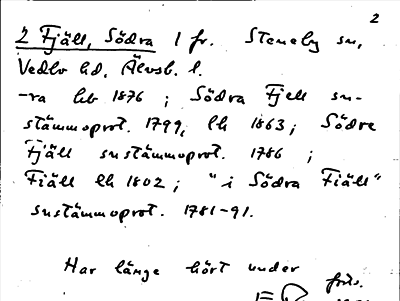 2
2 Fjäll, Södra 1 fr. Steneby sn,
Vedbo hd, Älvsb. l.
-ra hb 1876 ; Södra Fjell sn-
stämmoprot. 1799, lh 1863; Södre
Fjäll snstämmoprot. 1786 ;
Fiäll lh 1802 ; "i Södra Fiäll"
snstämmoprot. 1781-91.
Har länge hört under